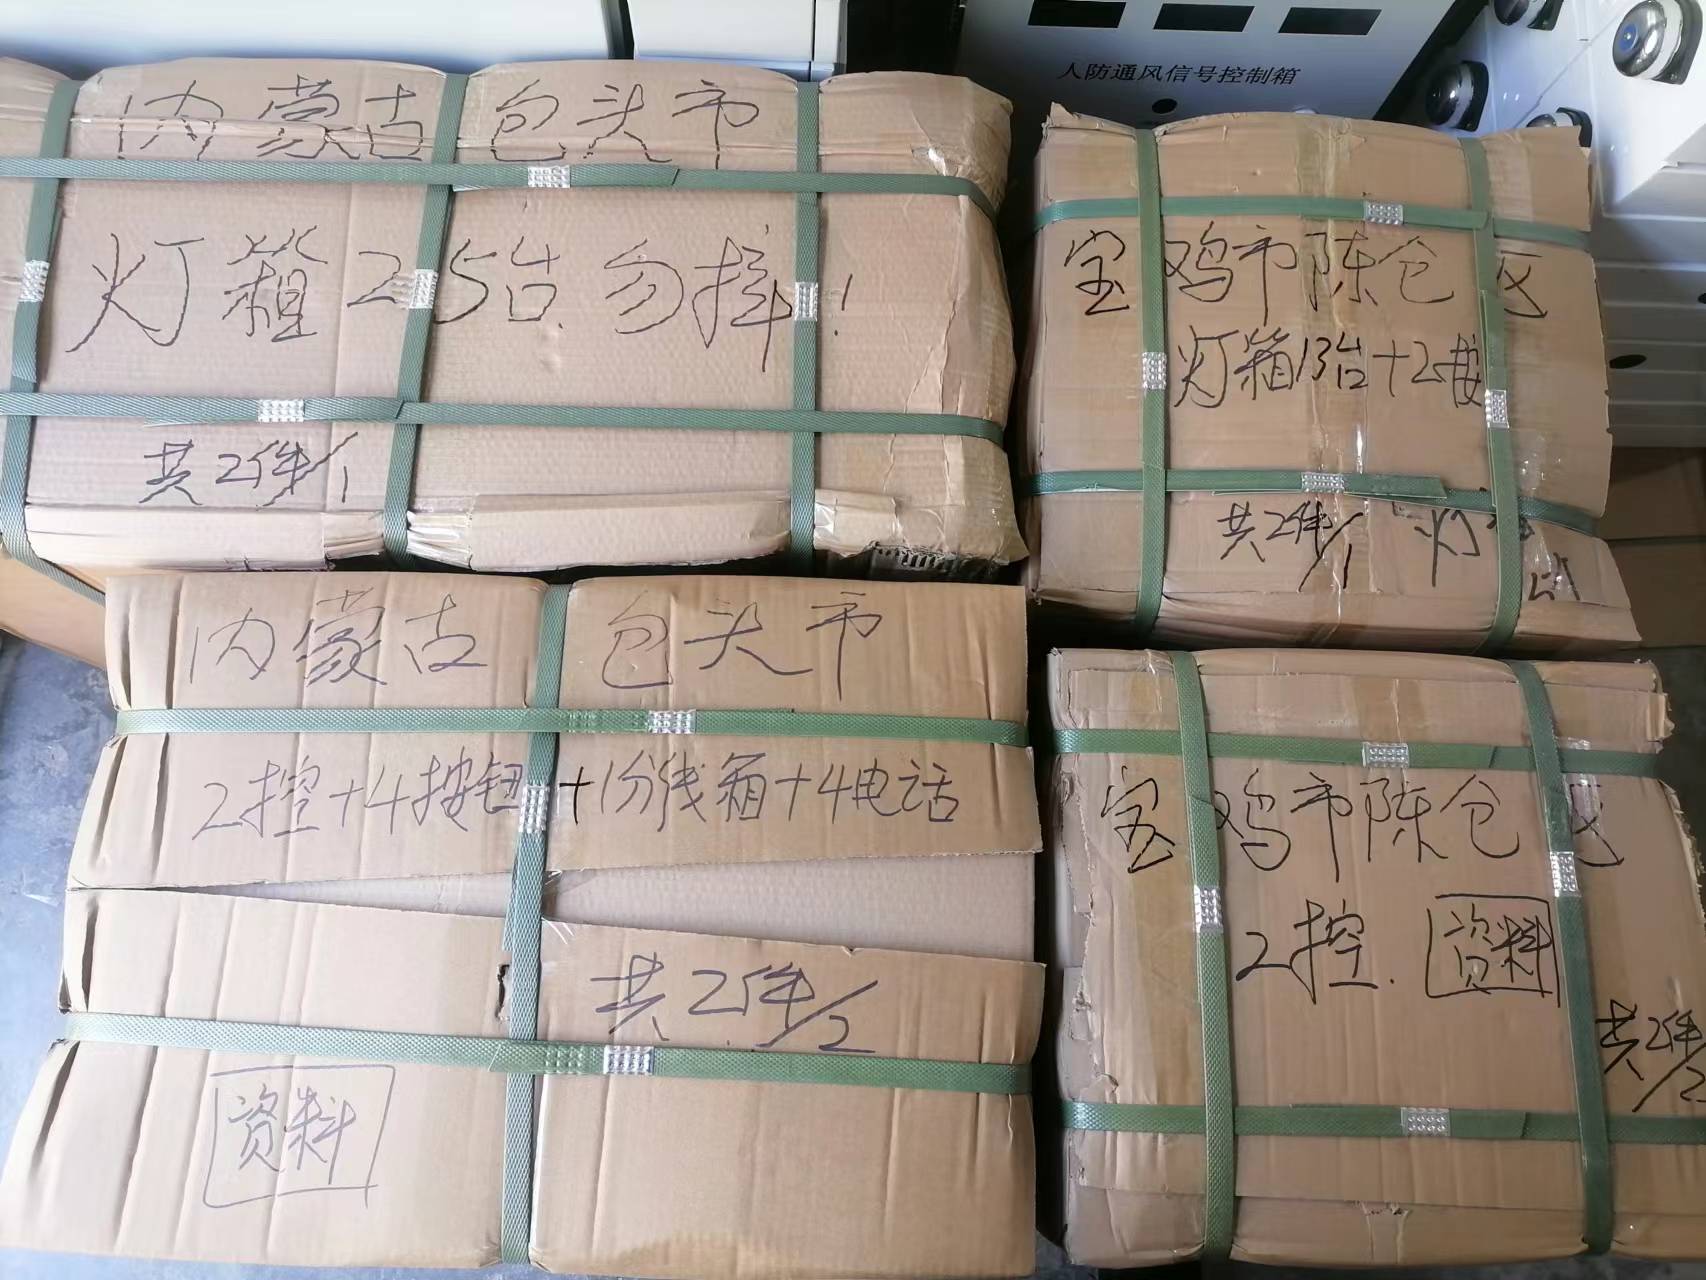 人防通风信号控制箱
内蒙古包头市
灯箱25台.勿摔!
共2件/1
宝鸡市陈仓区
灯箱13台+2按
共2件/1
灯
内蒙古包头市
2控+4按钮+1分线箱+4电话
共2件/2
资料
宝鸡市陈仓区
2控.
资料
共2件/2